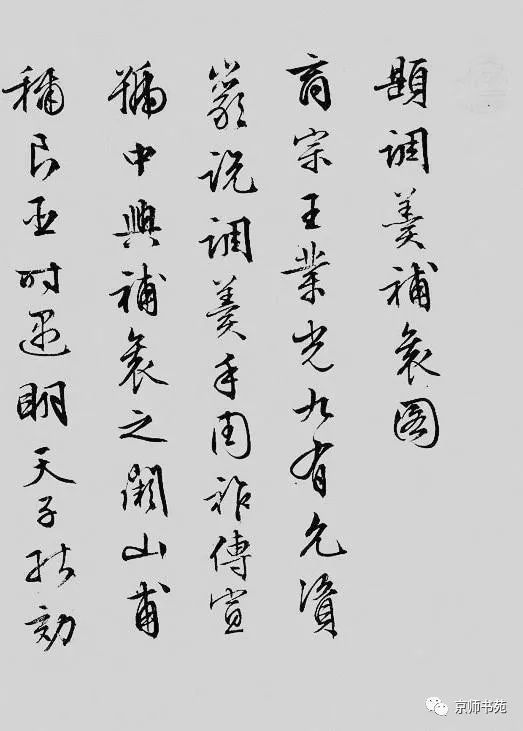 題調羹補衮圖
商宗王業光九有允資
巖説調羹手周祚傳宣
號中興補衮之闕山甫
稱良臣时遇明天子効
京师书苑